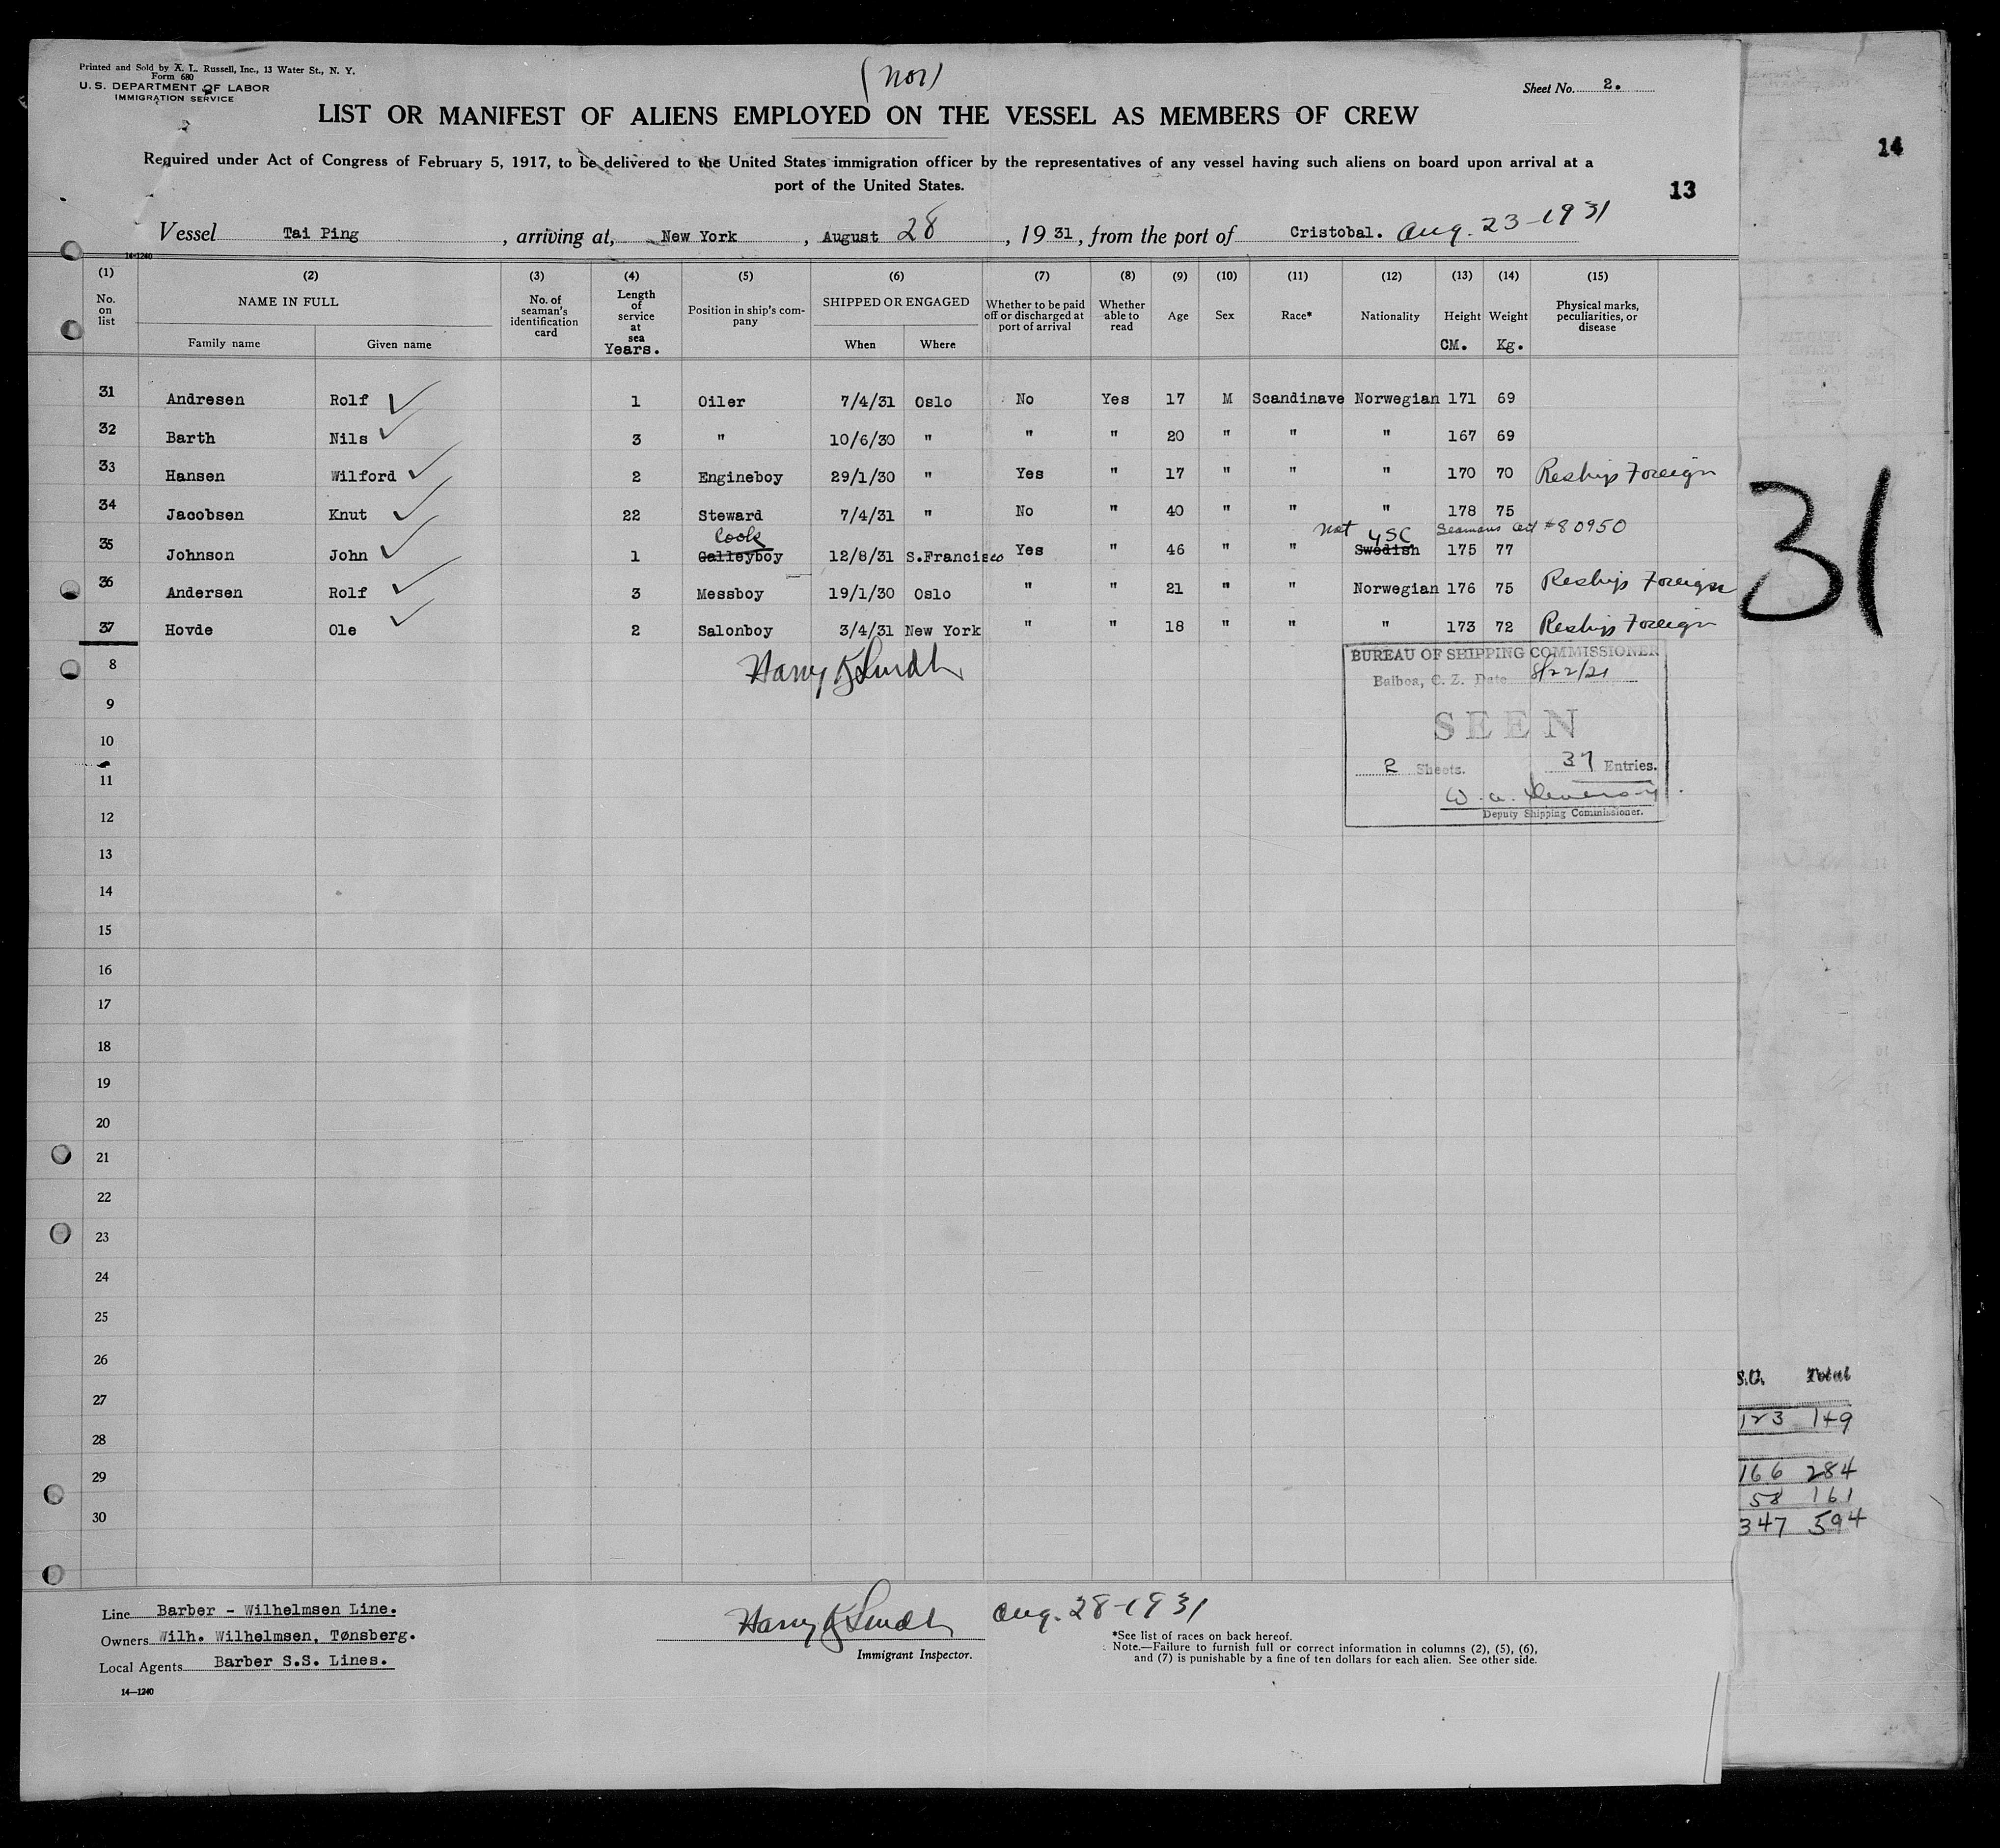 Printed and Sold by A. L. Russell, Inc., 13 Water St., N. Y.
Form 680
U. S. DEPARTMENT OF LABOR
IMMIGRATION SERVICE
(Nor)
Sheet No. 2.
LIST OR MANIFEST OF ALIENS EMPLOYED ON THE VESSEL AS MEMBERS OF CREW
Required under Act of Congress of February 5, 1917, to be delivered to the United States immigration officer by the representatives of any vessel having such aliens on board upon arrival at a
port of the United States.
13
14
Vessel Tai Ping, arriving at, New York, August 28, 1931, from the port of Cristobal. Aug. 23-1931
14-1240
(1) (2) (3) (4) (5) (6) (7) (8) (9) (10) (11) (12) (13) (14) (15)
No. on list NAME IN FULL Family name Given name No. of seaman's identification card Length of service at sea Years. Position in ship's company SHIPPED OR ENGAGED When Where Whether to be paid off or discharged at port of arrival Whether able to read Age Sex Race* Nationality Height CM. Weight Kg. Physical marks, peculiarities, or disease
31 Andresen Rolf 1 Oiler 7/4/31 Oslo No Yes 17 M Scandinave Norwegian 171 69
32 Barth Nils 3 " 10/6/30 " " " 20 " " " 167 69
33 Hansen Wilford 2 Engineboy 29/1/30 " Yes " 17 " " " 170 70 Reship Foreign
34 Jacobsen Knut 22 Steward 7/4/31 " No " 40 " " " 178 75
Cook Nat USC Seamans Cert #80950
35 Johnson John 1 Galleyboy 12/8/31 S.Francisco Yes " 46 " " Swedish 175 77
36 Andersen Rolf 3 Messboy 19/1/30 Oslo " " 21 " " Norwegian 176 75 Reship Foreign
37 Hovde Ole 2 Salonboy 3/4/31 New York " " 18 " " " 173 72 Reship Foreign
31
BUREAU OF SHIPPING COMMISSIONER
Balboa, C. Z. Date 8/22/31
SEEN
2 Sheets. 37 Entries.
Deputy Shipping Commissioner.
8
9
10
11
12
13
14
15
16
17
18
19
20
21
22
23
24
25
26
27
28
29
30
S.C. Total
123 149
166 284
58 161
347 594
Line Barber - Wilhelmsen Line.
Owners Wilh. Wilhelmsen, Tønsberg.
Local Agents Barber S.S. Lines.
14—1240
Aug. 28-1931
Immigrant Inspector.
*See list of races on back hereof.
Note.—Failure to furnish full or correct information in columns (2), (5), (6),
and (7) is punishable by a fine of ten dollars for each alien. See other side.